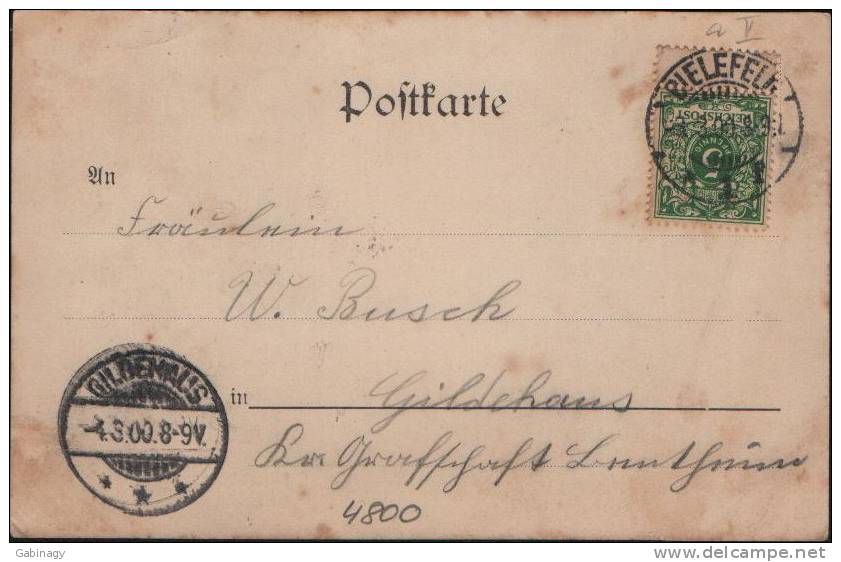 a V
BIELEFELD
Postkarte
REICHSPOST
5
An
Fräulein
W. Busch
GILDEHAUS
in Gildehaus
4.3.00.8-9V.
Kr. Grafschaft Bentheim
4800
Gabinagy
www.delcampe.net